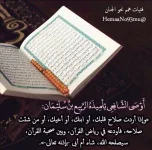 فتيات همم نحو الجنان
@HemaaNo93mu
أَوْصَى الشَّافِعِيُّ تِلْمِيذَهُ الرَّبِيعَ بْنَ سُلَيْمَانَ:
صلاح قلبك، أو ابنك، أو أخيك، أو من شئت
صلاحه، فأودعه في رياض القرآن، وبين صحبة القرآن،
سيصلحه الله، شاء أم أبى بإذنه تعالى